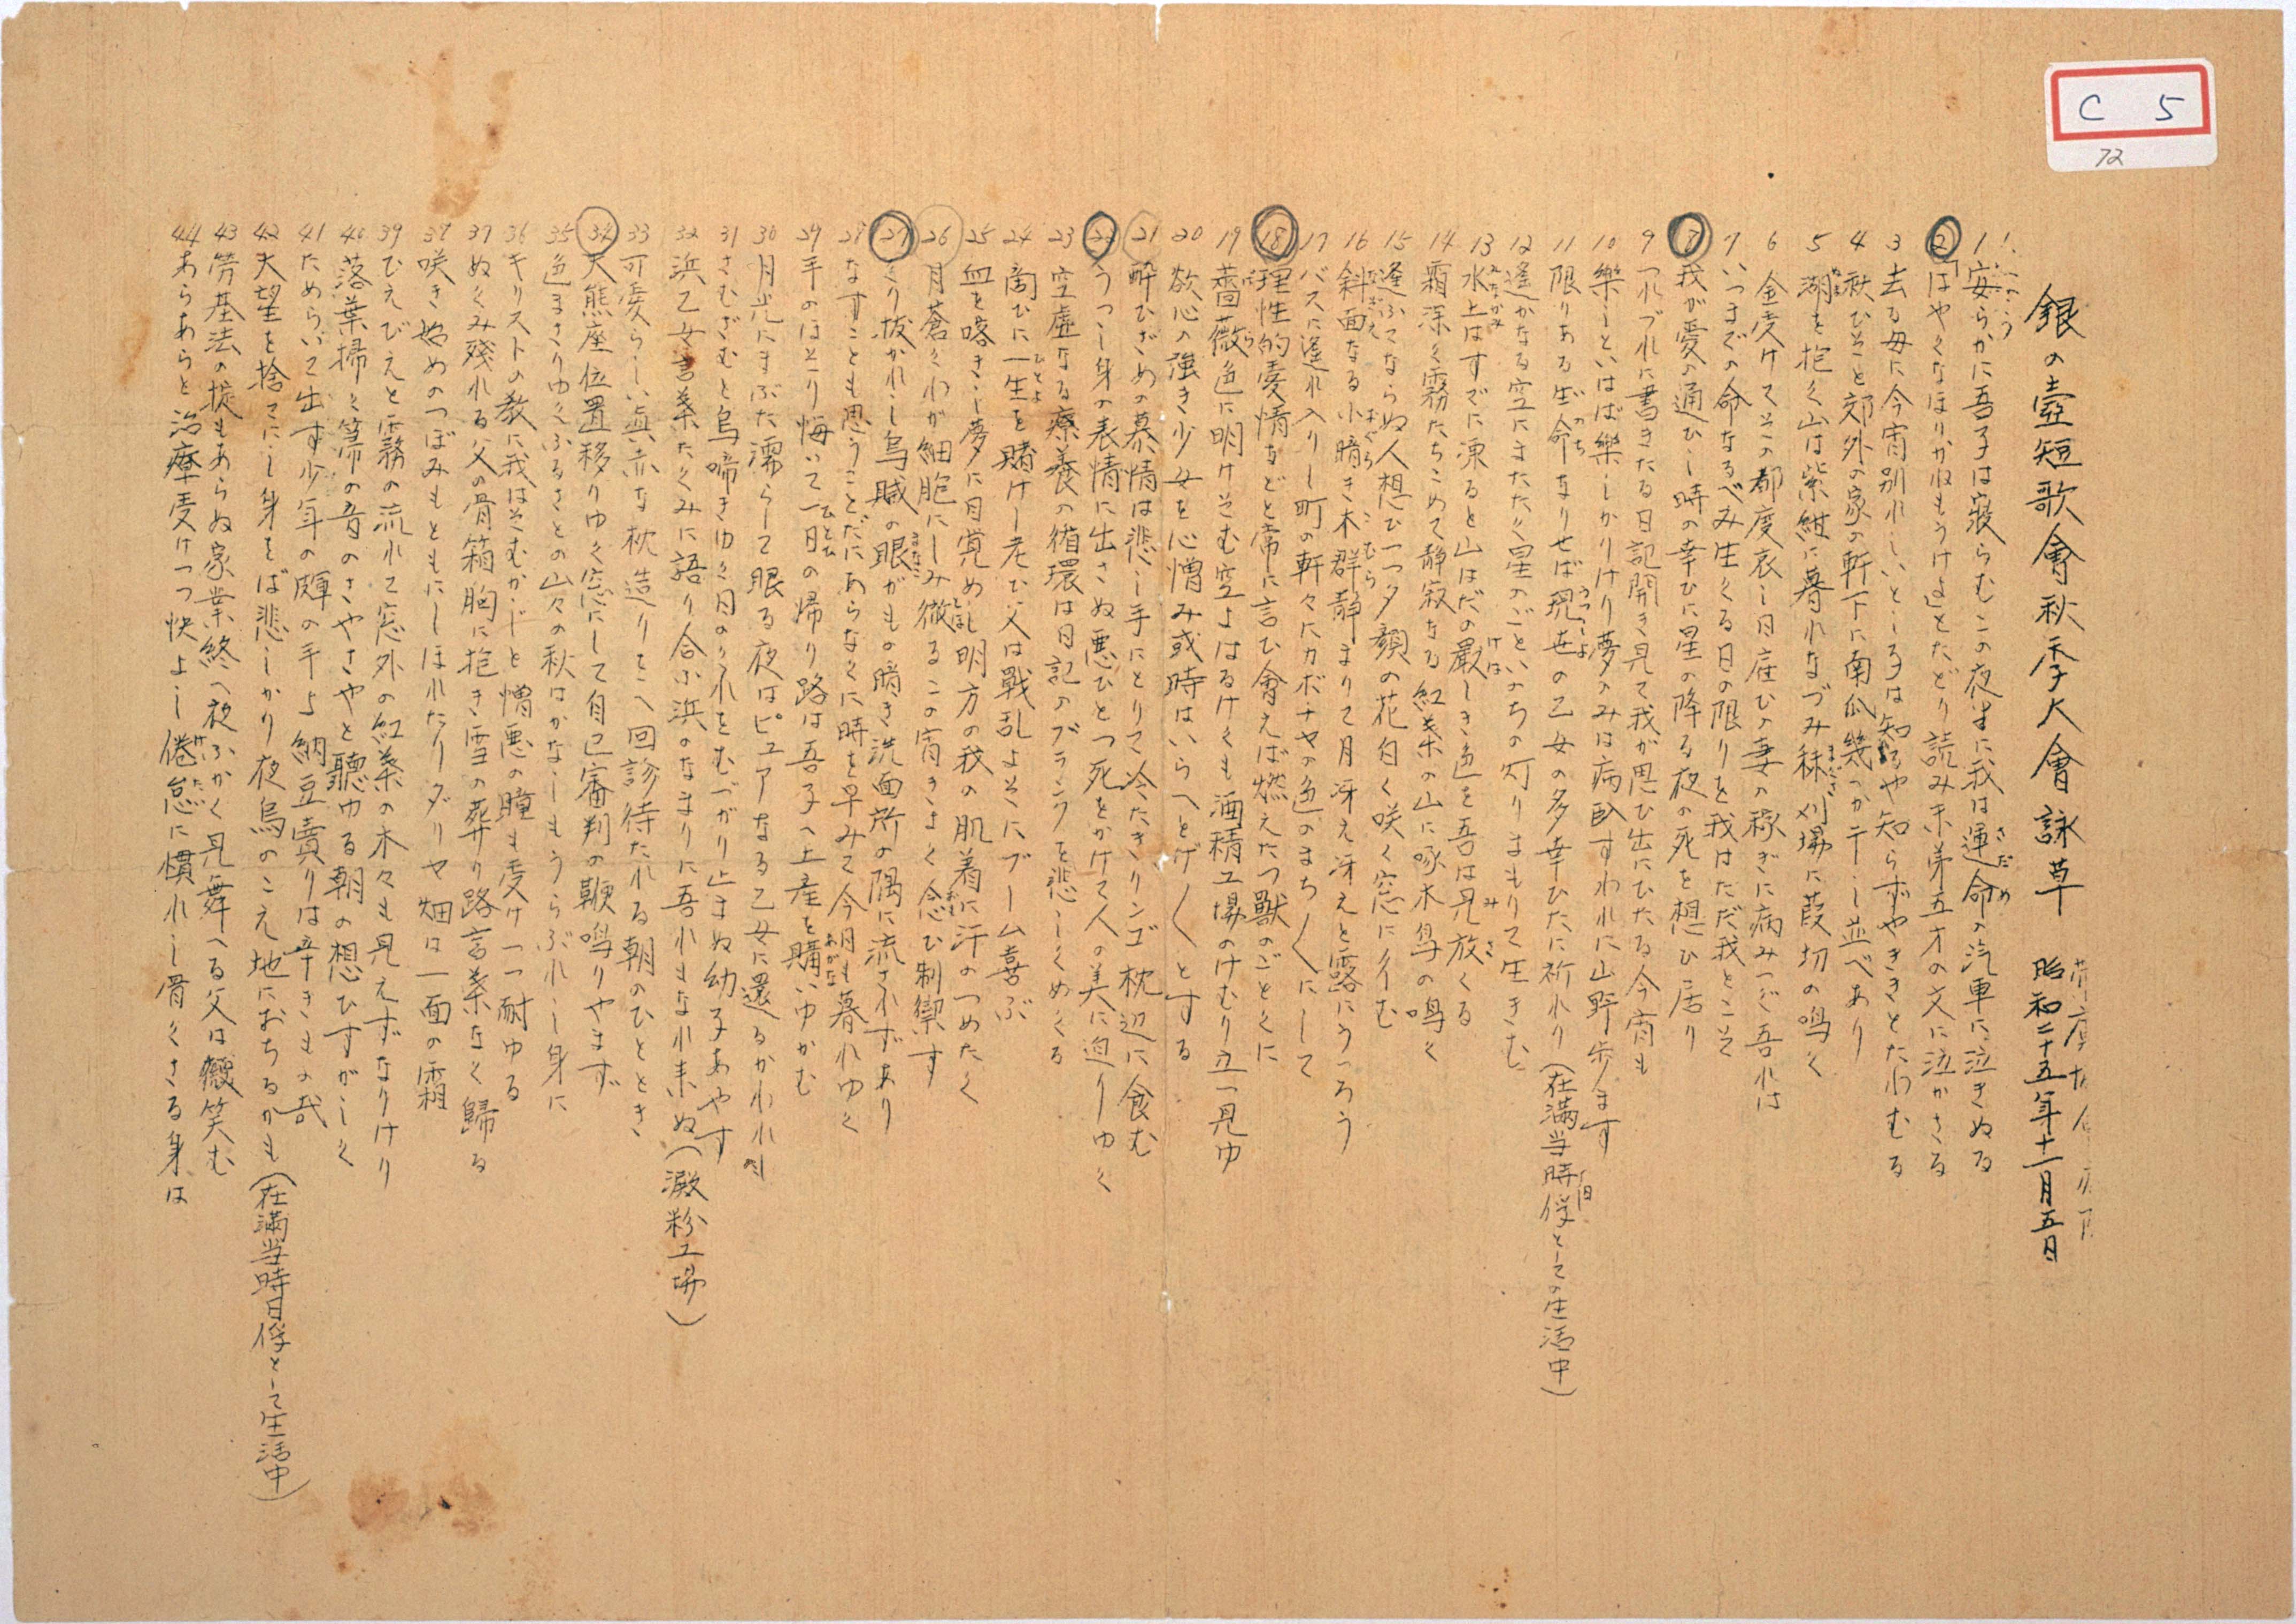 C 5
72
銀の壺短歌會秋季大會詠草 昭和二十五年十一月五日
1 安らかに吾子は寝らむこの夜半に我は運命の汽車に泣きぬる
2 「はやくなほりかねもうけよ」とたどり読み末弟五才の文に泣かさる
3 去る母に今宵別れしいとし子は知るや知らずやききとたわむる
4 秋ひそと郊外の家の軒下に南瓜幾つか干し並べあり
5 湖を抱く山は紫紺に暮れなづみ秣刈場に葭切の鳴く
6 金受けてその都度哀し日庭ひの妻の稼ぎに病みつぐ吾れは
7 いつまでの命なるべみ生くる日の限りを我はただ我とこそ
8 我が愛の通ひし時の幸ひに星の降る夜の死を想ひ居り
9 つれづれに書きたる日記開き見て我が思ひ出にひたる今宵も
10 樂しといはば樂しかりけり夢のみは病臥すわれに山野歩ます
11 限りある生命なりせば現世の乙女の多幸ひたに祈れり(在満当時日俘としての生活中)
12 遙かなる空にまたたく星のごといのちの灯りまもりて生きむ
13 水上はすでに凍ると山はだの嚴しき色を吾は見放くる
14 霜深く霧たちこめて静寂なる紅葉の山に啄木鳥の鳴く
15 逢ふてならぬ人想ひつつ夕顔の花白く咲く窓に佇む
16 斜面なる小暗き木群静まりて月冴え冴えと露にうつろう
17 バスに遙れ入りし町の軒々にカボチヤの色のまち〱にして
18 理性的愛情などと常に言ひ會えば燃えたつ獣のごとくに
19 薔薇色に明けそむ空よはるけくも酒精工場のけむり立つ見ゆ
20 欲心の強き少女を心憎み或時はいらへとげ〱とする
21 酔ひざめの慕情は悲し手にとりて冷たきリンゴ枕辺に食む
22 うつし身の表情に出さぬ悪ひとつ死をかけて人の美に迫りゆく
23 空虚なる療養の循環は日記のブランクを悲しくめくる
24 商ひに一生を賭けし老ひ父は戰乱よそにブーム喜ぶ
25 血を喀きし夢に目覚めし明方の我の肌着に汗のつめたく
26 月蒼くわが細胞にしみ徹るこの宵きよく念ひ制禦す
27 くり抜かれし烏賊の眼がもの暗き洗面所の隅に流されずあり
28 なすことも思うことだにあらなくに時を早みて今月も暮れゆく
29 手のほてり悔いて一日の帰り路は吾子へ土産を購いゆかむ
30 月光にまぶた濡らして眠る夜はピユアなる乙女に還るかわれ
31 さむざむと烏啼きゆく日のくれをむづかり止まぬ幼子あやす
32 浜乙女言葉たくみに語り合ふ浜のなまりに吾れもなれ来ぬ(澱粉工場)
33 可愛らしい真赤な枕造りそへ回診待たれる朝のひととき
34 大熊座位置移りゆく窓にして自己審判の鞭鳴りやまず
35 色まさりゆくふるさとの山々の秋はかなしもうらぶれし身に
36 キリストの教に我はそむかじと憎悪の瞳も受けつつ耐ゆる
37 ぬくみ殘れる父の骨箱胸に抱き雪の葬り路言葉なく歸る
38 咲き始めのつぼみもともにしほれたりダリヤ畑は一面の霜
39 ひえびえと霧の流れて窓外の紅葉の木々も見えずなりけり
40 落葉掃く箒の音のさやさやと聽ゆる朝の想ひすがしく
41 ためらいて出す少年の輝の手よ納豆賣りは辛きもの哉
42 大望を捨てにし身をば悲しかり夜烏のこえ地におちるかも(在満当時日俘として生活中)
43 労基法の掟もあらぬ家業終へ夜ふかく見舞へる父は微笑む
44 あらあらと治療受けつつ快よし倦怠に慣れし骨くさる身は